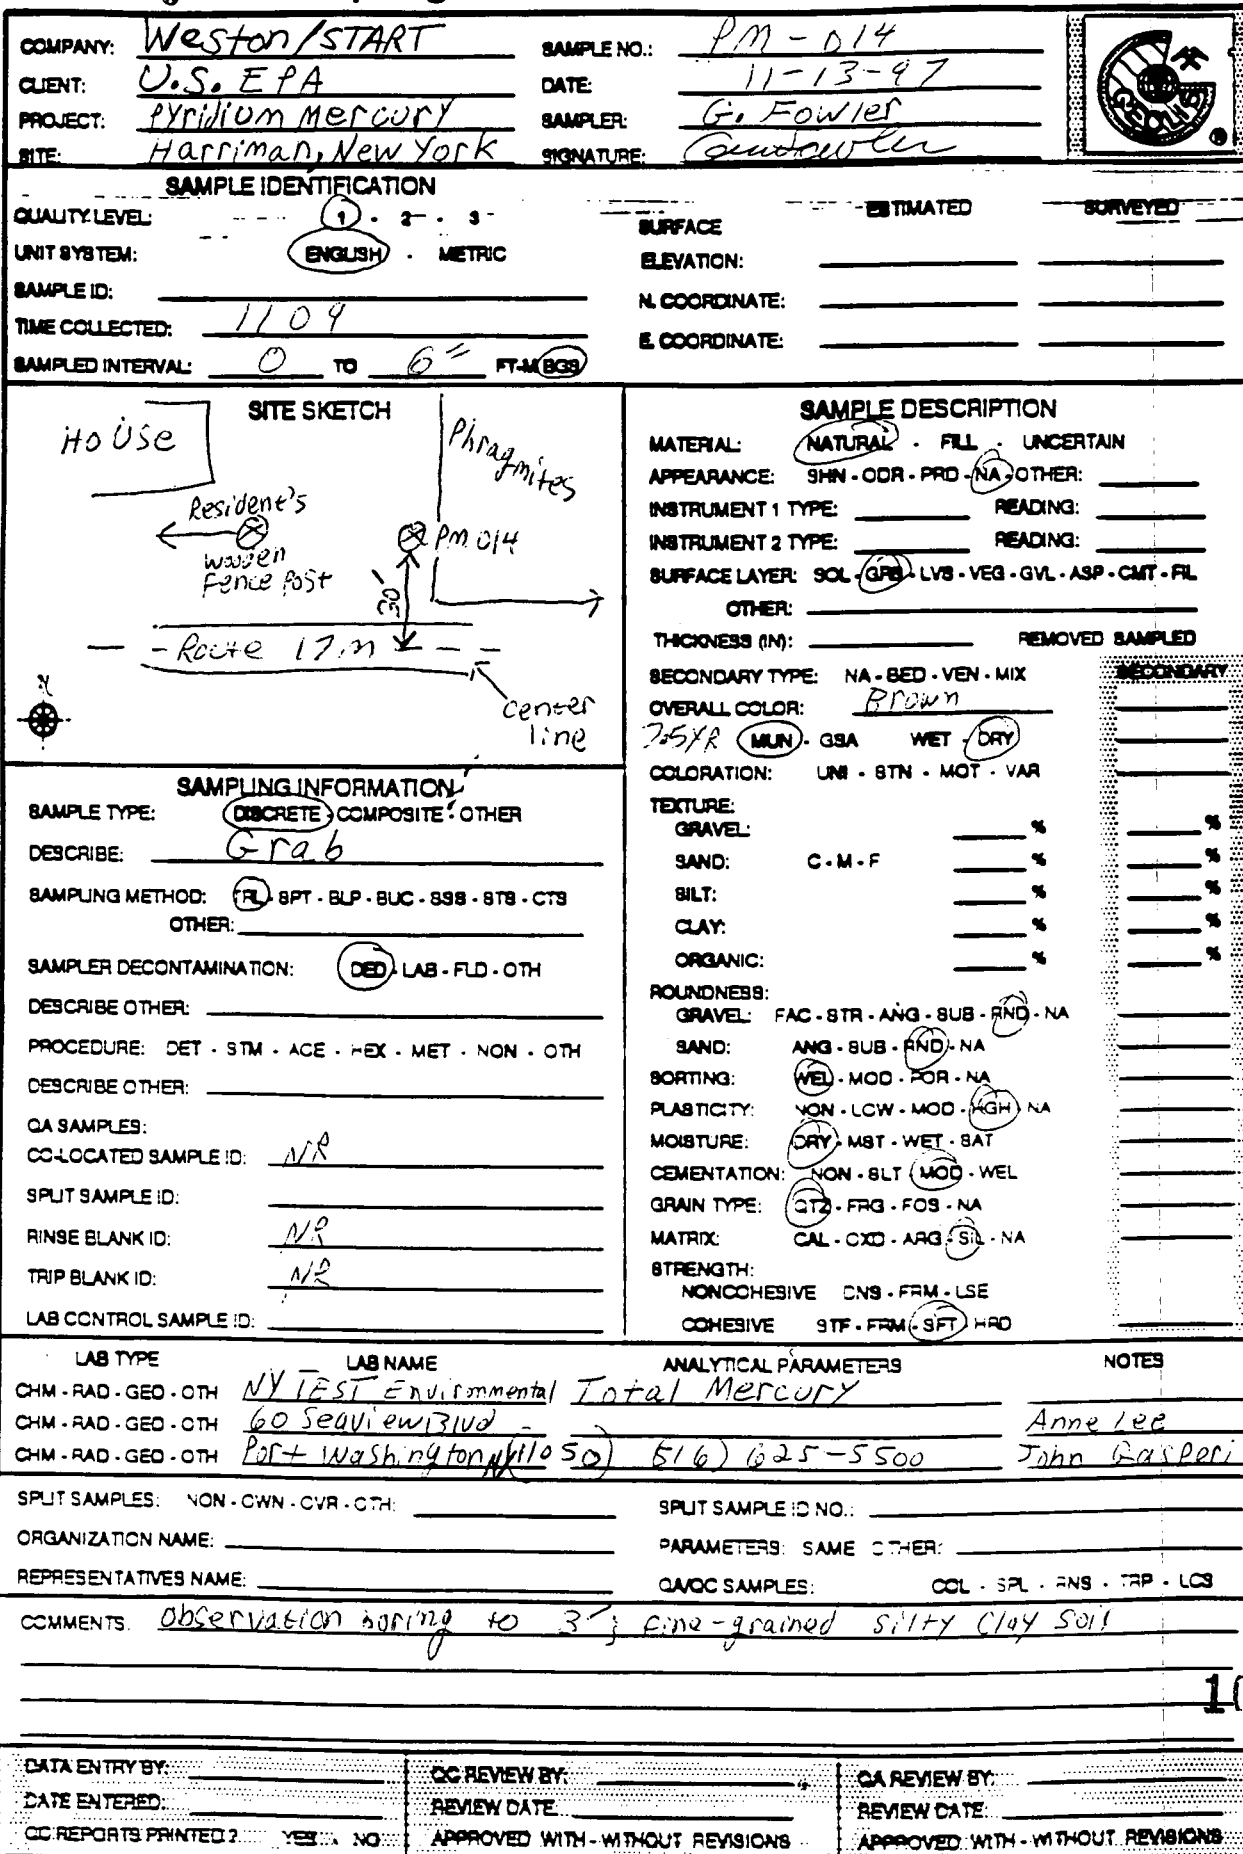 COMPANY: Weston/START SAMPLE NO.: PM-014
CLIENT: U.S. EPA DATE: 11-13-97
PROJECT: Pyridium Mercury SAMPLER: G. Fowler
SITE: Harriman, New York SIGNATURE:
SAMPLE IDENTIFICATION
QUALITY LEVEL: 1 - 2 - 3
UNIT SYSTEM: ENGLISH - METRIC
SAMPLE ID:
TIME COLLECTED: 1109
SAMPLED INTERVAL: 0 TO 6" FT-M BGS
ESTIMATED SURVEYED
SURFACE
ELEVATION:
N. COORDINATE:
E. COORDINATE:
SITE SKETCH
House
Phragmites
Resident's
Wooden
Fence Post
PM 014
30'
Route 17M
N
Center
line
SAMPLING INFORMATION
SAMPLE TYPE: DISCRETE - COMPOSITE - OTHER
DESCRIBE: Grab
SAMPLING METHOD: TRL - SPT - BLP - BUC - SSS - STS - CTS
OTHER:
SAMPLER DECONTAMINATION: DED - LAB - FLD - OTH
DESCRIBE OTHER:
PROCEDURE: DET - STM - ACE - HEX - MET - NON - OTH
DESCRIBE OTHER:
QA SAMPLES:
CO-LOCATED SAMPLE ID: NR
SPLIT SAMPLE ID:
RINSE BLANK ID: NR
TRIP BLANK ID: NR
LAB CONTROL SAMPLE ID:
SAMPLE DESCRIPTION
MATERIAL: NATURAL - FILL - UNCERTAIN
APPEARANCE: SHN - ODR - PRD - NA - OTHER:
INSTRUMENT 1 TYPE: READING:
INSTRUMENT 2 TYPE: READING:
SURFACE LAYER: SOL - GRS - LVS - VEG - GVL - ASP - CMT - FIL
OTHER:
THICKNESS (IN): REMOVED SAMPLED
SECONDARY TYPE: NA - BED - VEN - MIX SECONDARY
OVERALL COLOR: Brown
7.5YR MUN - GSA WET - DRY
COLORATION: UNI - STN - MOT - VAR
TEXTURE:
GRAVEL: % %
SAND: C - M - F % %
SILT: % %
CLAY: % %
ORGANIC: % %
ROUNDNESS:
GRAVEL: FAC - STR - ANG - SUB - RND - NA
SAND: ANG - SUB - RND - NA
SORTING: WEL - MOD - POR - NA
PLASTICITY: NON - LOW - MOD - HGH - NA
MOISTURE: DRY - MST - WET - SAT
CEMENTATION: NON - SLT - MOD - WEL
GRAIN TYPE: QTZ - FRG - FOS - NA
MATRIX: CAL - OXD - ARG - SIL - NA
STRENGTH:
NONCOHESIVE DNS - FRM - LSE
COHESIVE STF - FRM - SFT - HRD
LAB TYPE LAB NAME ANALYTICAL PARAMETERS NOTES
CHM - RAD - GEO - OTH NYTEST Environmental Total Mercury
CHM - RAD - GEO - OTH 60 Seaview Blvd Anne Lee
CHM - RAD - GEO - OTH Port Washington NY (11050) 516) 625-5500 John Gasperi
SPLIT SAMPLES: NON - OWN - OVR - OTH: SPLIT SAMPLE ID NO.:
ORGANIZATION NAME: PARAMETERS: SAME OTHER:
REPRESENTATIVES NAME: QA/QC SAMPLES: COL - SPL - RNS - TRP - LCS
COMMENTS: Observation boring to 3'; fine-grained silty clay soil
10
DATA ENTRY BY: QC REVIEW BY: QA REVIEW BY:
DATE ENTERED: REVIEW DATE: REVIEW DATE:
QC REPORTS PRINTED? YES NO APPROVED WITH - WITHOUT REVISIONS APPROVED WITH - WITHOUT REVISIONS